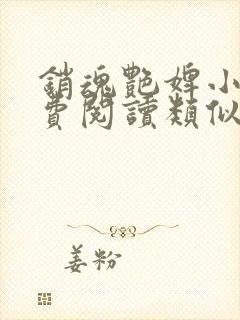 銷魂艷婢小
費閱讀類似
姜粉